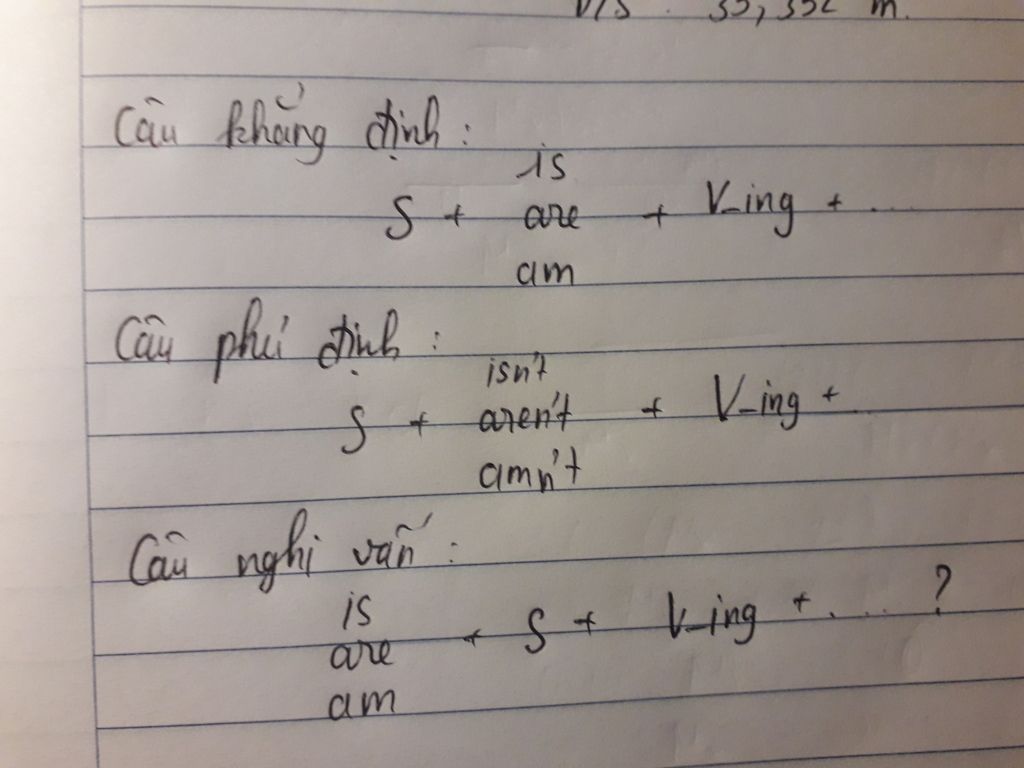 Câu khẳng định :
is
S + are + V-ing + ...
am
Câu phủ định :
isn't
S + aren't + V-ing + ..
amn't
Câu nghi vấn :
is
are + S + V-ing + .... ?
am